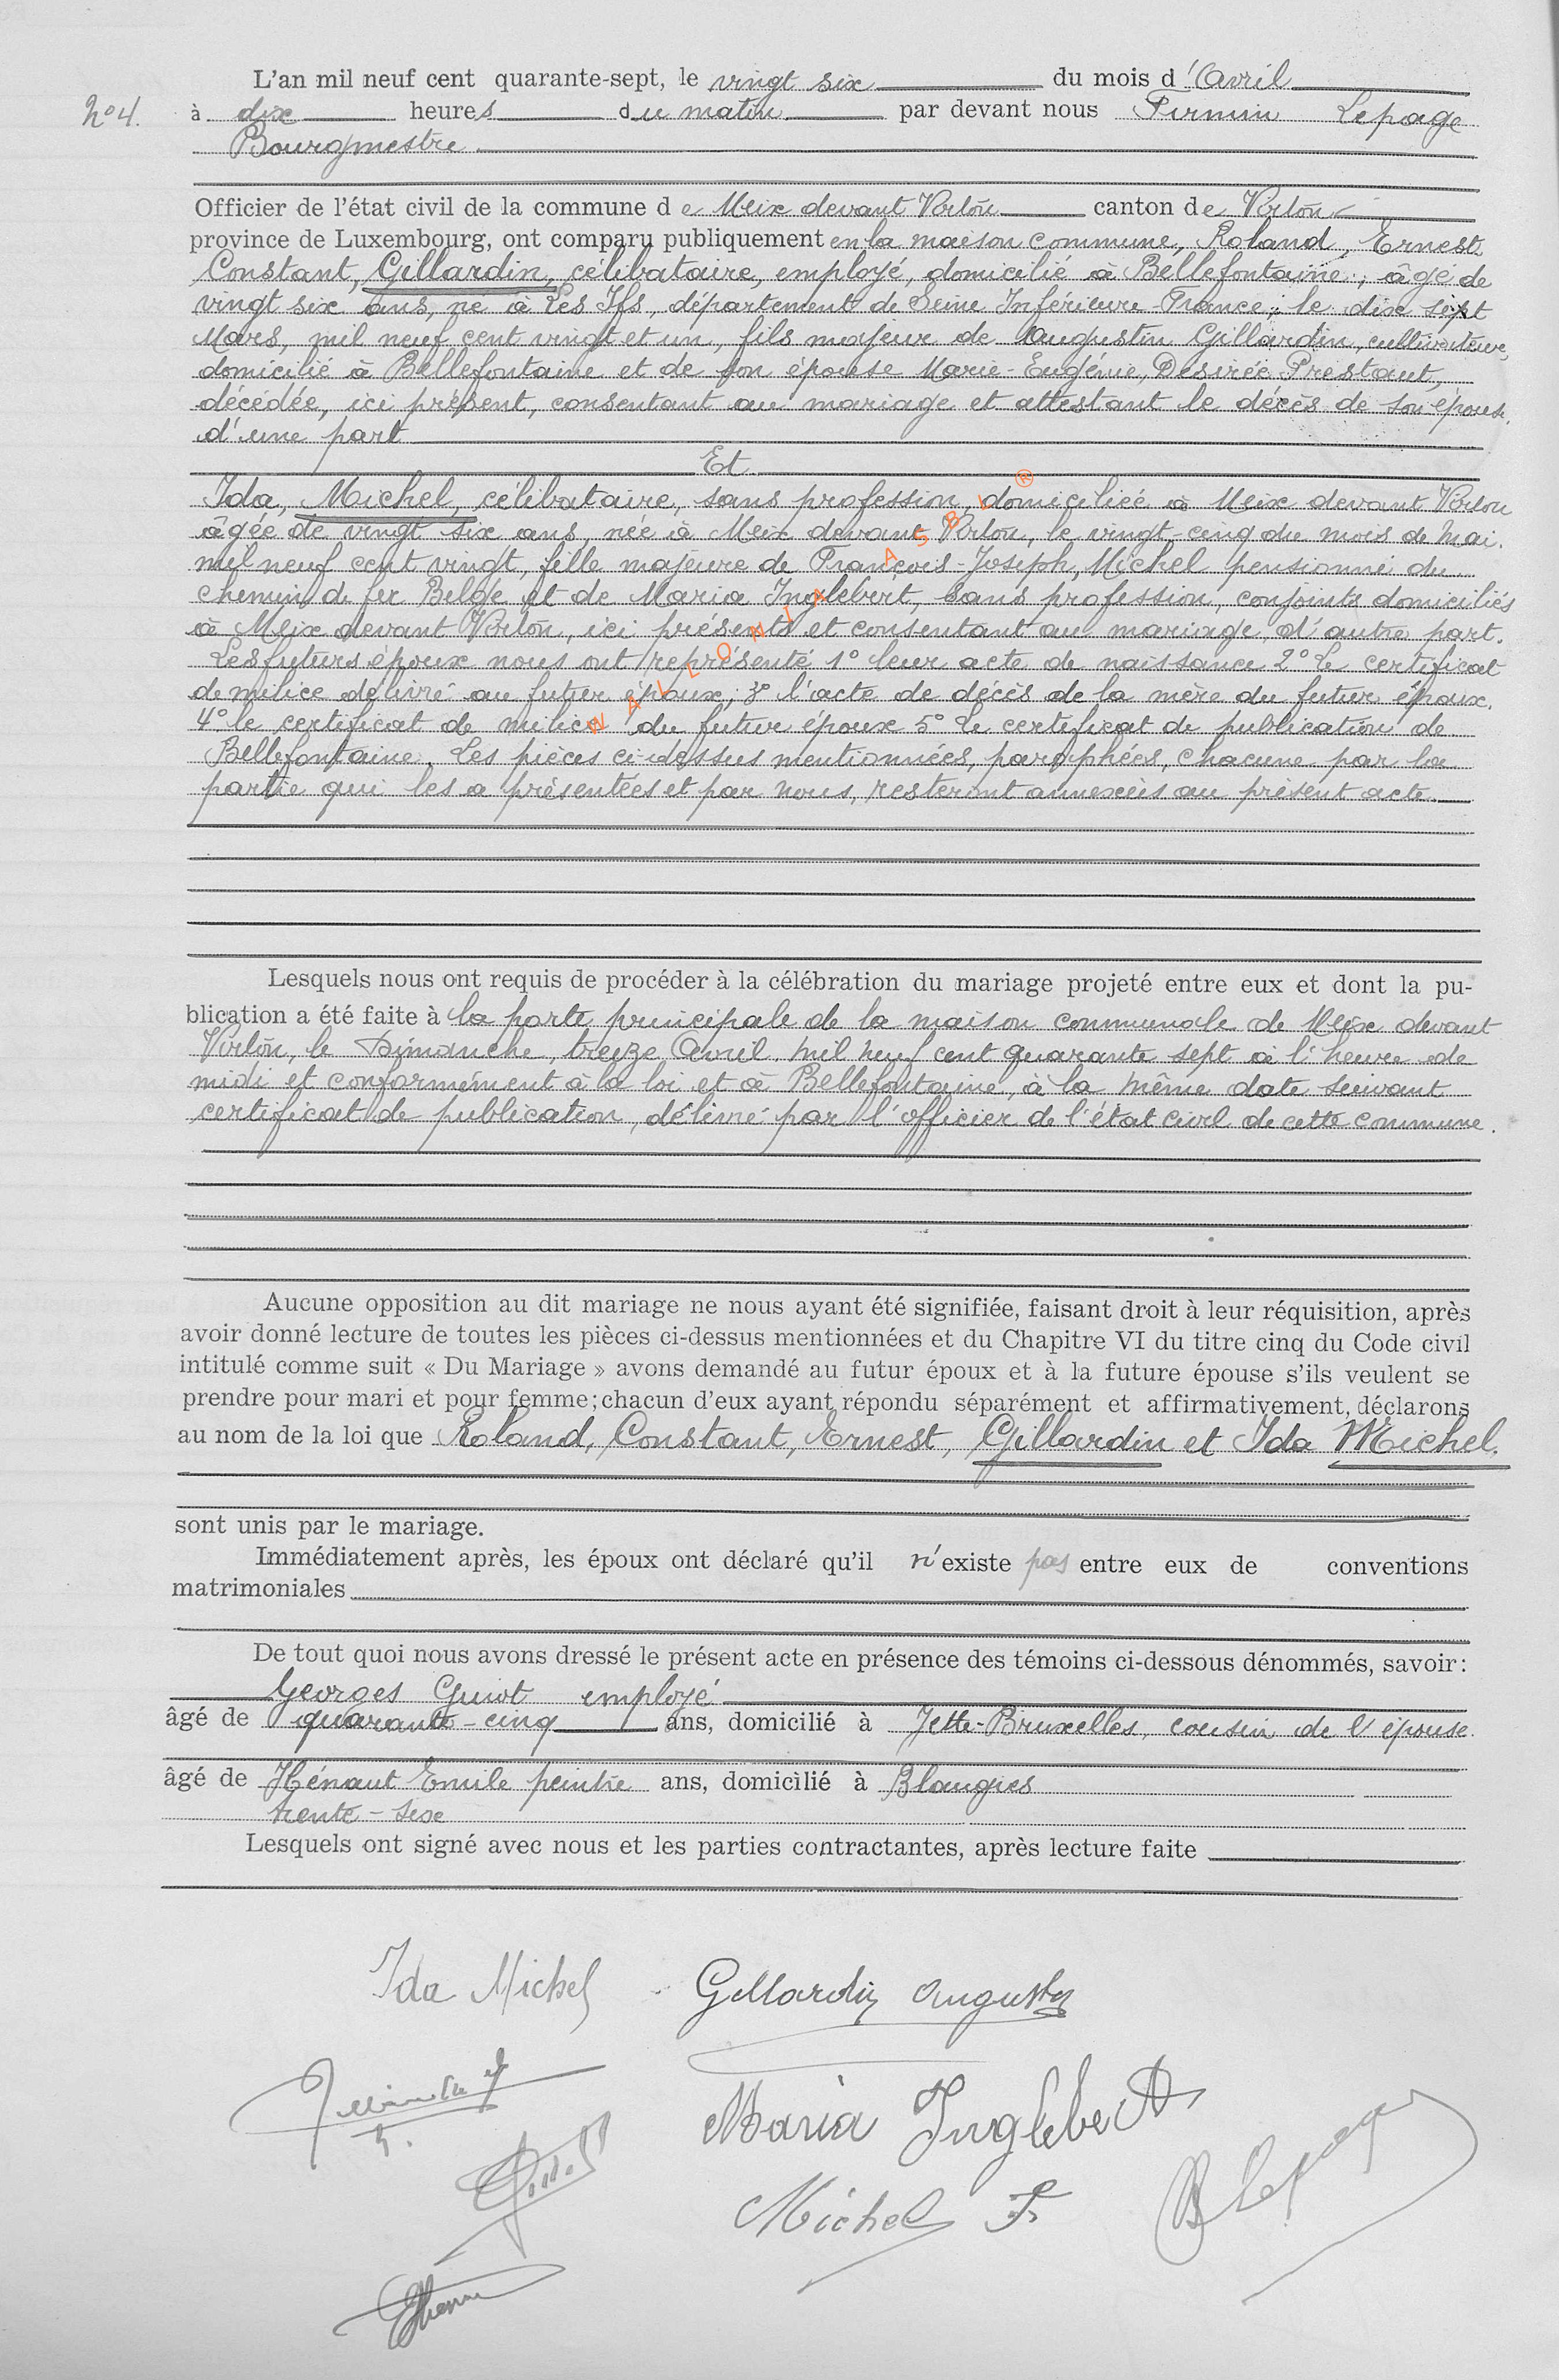 L'an mil neuf cent quarante-sept, le vingt six du mois d'Avril
N° 4. à dix heures du matin par devant nous Firmin Lepage
Bourgmestre
Officier de l'état civil de la commune de Meix devant Virton canton de Virton
province de Luxembourg, ont comparu publiquement en la maison commune, Roland, Ernest
Constant, Gillardin, célibataire, employé, domicilié à Bellefontaine, âgé de
vingt six ans, né à Les Ifs, département de Seine Inférieure-France; le dix sept
Mars, mil neuf cent vingt et un, fils majeur de Augustin Gillardin, cultivateur,
domicilié à Bellefontaine et de son épouse Marie-Eugénie, Désirée Prestaut,
décédée, ici présent, consentant au mariage et attestant le décès de son épouse.
d'une part
Et
Ida, Michel, célibataire, sans profession, domiciliée à Meix devant Virton
âgée de vingt six ans, née à Meix devant Virton, le vingt-cinq du mois de Mai.
mil neuf cent vingt, fille majeure de François-Joseph, Michel pensionné du
chemin de fer Belge et de Maria Inglebert, sans profession, conjoints domiciliés
à Meix devant Virton, ici présents et consentant au mariage, d'autre part.
Les futurs époux nous ont représenté 1° leur acte de naissance 2° le certificat
de milice délivré au futur époux; 3° l'acte de décès de la mère du futur époux.
4° le certificat de milice du futur époux 5° le certificat de publication de
Bellefontaine. Les pièces ci-dessus mentionnées, paraphées, chacune par la
partie qui les a présentées et par nous, resteront annexées au présent acte.
WALLONIA ASBL ®
Lesquels nous ont requis de procéder à la célébration du mariage projeté entre eux et dont la pu-
blication a été faite à la porte principale de la maison communale de Meix devant
Virton, le Dimanche, treize Avril mil neuf cent quarante sept à l'heure de
midi et conformément à la loi et à Bellefontaine, à la même date suivant
certificat de publication, délivré par l'officier de l'état civil de cette commune.
Aucune opposition au dit mariage ne nous ayant été signifiée, faisant droit à leur réquisition, après
avoir donné lecture de toutes les pièces ci-dessus mentionnées et du Chapitre VI du titre cinq du Code civil
intitulé comme suit « Du Mariage » avons demandé au futur époux et à la future épouse s'ils veulent se
prendre pour mari et pour femme; chacun d'eux ayant répondu séparément et affirmativement, déclarons
au nom de la loi que Roland, Constant, Ernest, Gillardin et Ida Michel.
sont unis par le mariage.
Immédiatement après, les époux ont déclaré qu'il n'existe pas entre eux de conventions
matrimoniales
De tout quoi nous avons dressé le présent acte en présence des témoins ci-dessous dénommés, savoir:
Georges Guiot employé
âgé de quarante-cinq ans, domicilié à Jette-Bruxelles, cousin de l'épouse
âgé de Hénaut Emile peintre ans, domicilié à Blaugies
trente-six
Lesquels ont signé avec nous et les parties contractantes, après lecture faite
Ida Michel Gillardin Augustin
Maria Inglebert
Michel F.
Lepage